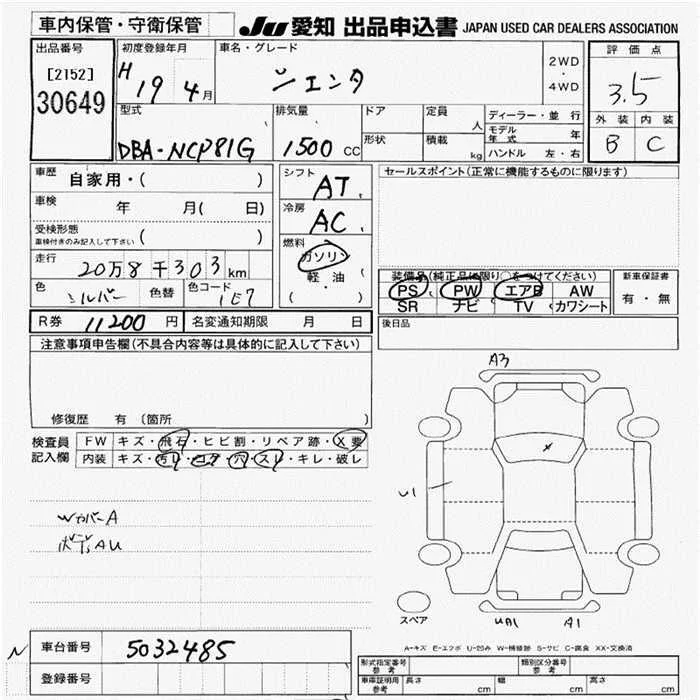 車内保管・守衛保管 JU 愛知 出品申込書 JAPAN USED CAR DEALERS ASSOCIATION
出品番号 初度登録年月 車名・グレード 評価点
[2152] H 19 4月 シエンタ 2WD・4WD 3.5
30649 型式 排気量 ドア 定員 人 ディーラー・並行 外装 内装
モデル年式 年
DBA-NCP81G 1500 CC 形状 積載 kg ハンドル 左・右 B C
車歴 自家用・( ) シフト AT セールスポイント(正常に機能するものに限ります)
車検 年 月( 日) 冷房 AC
受検形態 車検付きのみ記入して下さい ( ) 燃料 ガソリン
走行 20万8千303km 軽・油 装備品(純正品に限り○をつけてください) 新車保証書
色 シルバー 色替 色コード 1E7 ( ) PS PW エアB AW 有・無
SR ナビ TV カワシート
R券 11200円 名変通知期限 月 日 後日品
注意事項申告欄(不具合内容等は具体的に記入して下さい)
A3
修復歴 有 (箇所 )
検査員 FW キズ・飛石・ヒビ割・リペア跡・X要
記入欄 内装 キズ・汚レ・コゲ・穴・スレ・キレ・破レ
X
U1
WカバーA
ボデーAU
スペア UA1 A1
A-キズ E-エクボ U-凹み W-補修跡 S-サビ C-腐食 XX-交換済
N 車台番号 5032485
登録番号
形式指定番号 参考 類別区分番号 参考
車庫証明用 参考 長さ cm 幅 cm 高さ cm